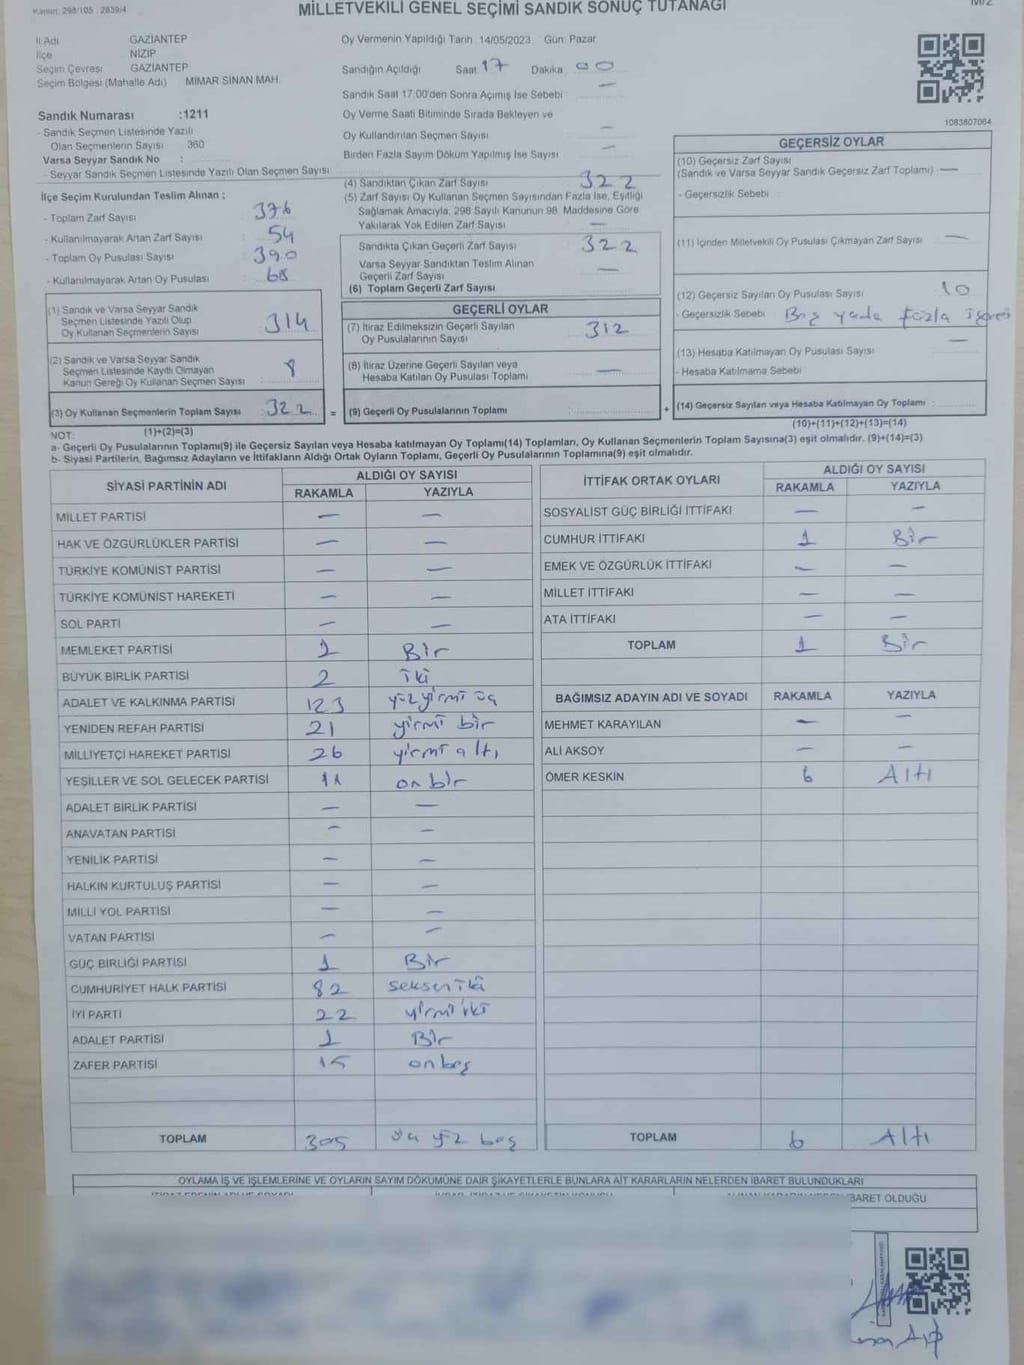 Kanun: 298/105 . 2839/4
MİLLETVEKİLİ GENEL SEÇİMİ SANDIK SONUÇ TUTANAĞI
İl Adı GAZİANTEP
İlçe NİZİP
Seçim Çevresi GAZİANTEP
Seçim Bölgesi (Mahalle Adı) MİMAR SİNAN MAH.
Oy Vermenin Yapıldığı Tarih :14/05/2023 Gün: Pazar
Sandığın Açıldığı Saat: 17 Dakika: 00
Sandık Saat 17:00'den Sonra Açımış İse Sebebi : —
Oy Verme Saati Bitiminde Sırada Bekleyen ve
Oy Kullandırılan Seçmen Sayısı —
Birden Fazla Sayım Döküm Yapılmış İse Sayısı —
1083807064
Sandık Numarası :1211
- Sandık Seçmen Listesinde Yazılı
Olan Seçmenlerin Sayısı 360
Varsa Seyyar Sandık No :
- Seyyar Sandık Seçmen Listesinde Yazılı Olan Seçmen Sayısı
İlçe Seçim Kurulundan Teslim Alınan ;
- Toplam Zarf Sayısı 376
- Kullanılmayarak Artan Zarf Sayısı 54
- Toplam Oy Pusulası Sayısı 390
- Kullanılmayarak Artan Oy Pusulası 68
(1) Sandık ve Varsa Seyyar Sandık
Seçmen Listesinde Yazılı Olup
Oy Kullanan Seçmenlerin Sayısı 314
(2) Sandık ve Varsa Seyyar Sandık
Seçmen Listesinde Kayıtlı Olmayan
Kanun Gereği Oy Kullanan Seçmen Sayısı 8
(3) Oy Kullanan Seçmenlerin Toplam Sayısı 322 =
(1)+(2)=(3)
(4) Sandıktan Çıkan Zarf Sayısı 322
(5) Zarf Sayısı Oy Kullanan Seçmen Sayısından Fazla İse, Eşitliği
Sağlamak Amacıyla, 298 Sayılı Kanunun 98. Maddesine Göre
Yakılarak Yok Edilen Zarf Sayısı —
Sandıkta Çıkan Geçerli Zarf Sayısı 322
Varsa Seyyar Sandıktan Teslim Alınan
Geçerli Zarf Sayısı —
(6) Toplam Geçerli Zarf Sayısı
GEÇERLİ OYLAR
(7) İtiraz Edilmeksizin Geçerli Sayılan
Oy Pusulalarının Sayısı 312
(8) İtiraz Üzerine Geçerli Sayılan veya
Hesaba Katılan Oy Pusulası Toplamı —
(9) Geçerli Oy Pusulalarının Toplamı +
GEÇERSİZ OYLAR
(10) Geçersiz Zarf Sayısı
(Sandık ve Varsa Seyyar Sandık Geçersiz Zarf Toplamı) —
- Geçersizlik Sebebi :
(11) İçinden Milletvekili Oy Pusulası Çıkmayan Zarf Sayısı —
(12) Geçersiz Sayılan Oy Pusulası Sayısı 10
- Geçersizlik Sebebi : Boş yada fazla
(13) Hesaba Katılmayan Oy Pusulası Sayısı —
- Hesaba Katılmama Sebebi
(14) Geçersiz Sayılan veya Hesaba Katılmayan Oy Toplamı :
(10)+(11)+(12)+(13)=(14)
NOT:
a- Geçerli Oy Pusulalarının Toplamı(9) ile Geçersiz Sayılan veya Hesaba katılmayan Oy Toplamı(14) Toplamları, Oy Kullanan Seçmenlerin Toplam Sayısına(3) eşit olmalıdır. (9)+(14)=(3)
b- Siyasi Partilerin, Bağımsız Adayların ve İttifakların Aldığı Ortak Oyların Toplamı, Geçerli Oy Pusulalarının Toplamına(9) eşit olmalıdır.
SİYASİ PARTİNİN ADI ALDIĞI OY SAYISI
RAKAMLA YAZIYLA
MİLLET PARTİSİ — —
HAK VE ÖZGÜRLÜKLER PARTİSİ — —
TÜRKİYE KOMÜNİST PARTİSİ — —
TÜRKİYE KOMÜNİST HAREKETİ — —
SOL PARTİ — —
MEMLEKET PARTİSİ 1 Bir
BÜYÜK BİRLİK PARTİSİ 2 iki
ADALET VE KALKINMA PARTİSİ 123 yüz yirmi üç
YENİDEN REFAH PARTİSİ 21 yirmi bir
MİLLİYETÇİ HAREKET PARTİSİ 26 yirmi altı
YEŞİLLER VE SOL GELECEK PARTİSİ 11 on bir
ADALET BİRLİK PARTİSİ — —
ANAVATAN PARTİSİ — —
YENİLİK PARTİSİ — —
HALKIN KURTULUŞ PARTİSİ — —
MİLLİ YOL PARTİSİ — —
VATAN PARTİSİ — —
GÜÇ BİRLİĞİ PARTİSİ 1 Bir
CUMHURİYET HALK PARTİSİ 82 seksen iki
İYİ PARTİ 22 yirmi iki
ADALET PARTİSİ 1 Bir
ZAFER PARTİSİ 15 on beş
TOPLAM 305 üç yüz beş
İTTİFAK ORTAK OYLARI ALDIĞI OY SAYISI
RAKAMLA YAZIYLA
SOSYALİST GÜÇ BİRLİĞİ İTTİFAKI — —
CUMHUR İTTİFAKI 1 Bir
EMEK VE ÖZGÜRLÜK İTTİFAKI — —
MİLLET İTTİFAKI — —
ATA İTTİFAKI — —
TOPLAM 1 Bir
BAĞIMSIZ ADAYIN ADI VE SOYADI RAKAMLA YAZIYLA
MEHMET KARAYILAN — —
ALİ AKSOY — —
ÖMER KESKİN 6 Altı
TOPLAM 6 Altı
OYLAMA İŞ VE İŞLEMLERİNE VE OYLARIN SAYIM DÖKÜMÜNE DAİR ŞİKAYETLERLE BUNLARA AİT KARARLARIN NELERDEN İBARET BULUNDUKLARI
İBARET OLDUĞU